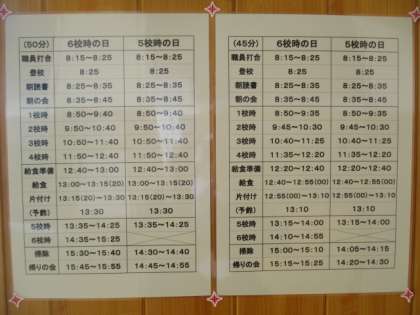 (50分) 6校時の日 5校時の日
職員打合 8:15～8:25 8:15～8:25
登校 8:25 8:25
朝読書 8:25～8:35 8:25～8:35
朝の会 8:35～8:45 8:35～8:45
1校時 8:50～9:40 8:50～9:40
2校時 9:50～10:40 9:50～10:40
3校時 10:50～11:40 10:50～11:40
4校時 11:50～12:40 11:50～12:40
給食準備 12:40～13:00 12:40～13:00
給食 13:00～13:15(20) 13:00～13:15(20)
片付け 13:15(20)～13:30 13:15(20)～13:30
(予鈴) 13:30 13:30
5校時 13:35～14:25 13:35～14:25
6校時 14:35～15:25
掃除 15:30～15:40 14:30～14:40
帰りの会 15:45～15:55 14:45～14:55
(45分) 6校時の日 5校時の日
職員打合 8:15～8:25 8:15～8:25
登校 8:25 8:25
朝読書 8:25～8:35 8:25～8:35
朝の会 8:35～8:45 8:35～8:45
1校時 8:50～9:35 8:50～9:35
2校時 9:45～10:30 9:45～10:30
3校時 10:40～11:25 10:40～11:25
4校時 11:35～12:20 11:35～12:20
給食準備 12:20～12:40 12:20～12:40
給食 12:40～12:55(00) 12:40～12:55(00)
片付け 12:55(00)～13:10 12:55(00)～13:10
(予鈴) 13:10 13:10
5校時 13:15～14:00 13:15～14:00
6校時 14:10～14:55
掃除 15:00～15:10 14:05～14:15
帰りの会 15:15～15:25 14:20～14:30